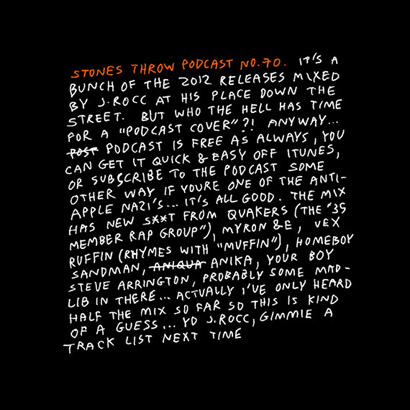 STONES THROW PODCAST NO.70. IT'S A
BUNCH OF THE 2012 RELEASES MIXED
BY J.ROCC AT HIS PLACE DOWN THE
STREET. BUT WHO THE HELL HAS TIME
FOR A "PODCAST COVER"?! ANYWAY...
POST PODCAST IS FREE AS ALWAYS, YOU
CAN GET IT QUICK & EASY OFF ITUNES,
OR SUBSCRIBE TO THE PODCAST SOME
OTHER WAY IF YOURE ONE OF THE ANTI-
APPLE NAZI'S... IT'S ALL GOOD. THE MIX
HAS NEW SXXT FROM QUAKERS (THE "35
MEMBER RAP GROUP"), MYRON & E, VEX
RUFFIN (RHYMES WITH "MUFFIN"), HOMEBOY
SANDMAN, ANIQUA ANIKA, YOUR BOY
STEVE ARRINGTON, PROBABLY SOME MAD-
LIB IN THERE... ACTUALLY I'VE ONLY HEARD
HALF THE MIX SO FAR SO THIS IS KIND
OF A GUESS... YO J.ROCC, GIMMIE A
TRACK LIST NEXT TIME